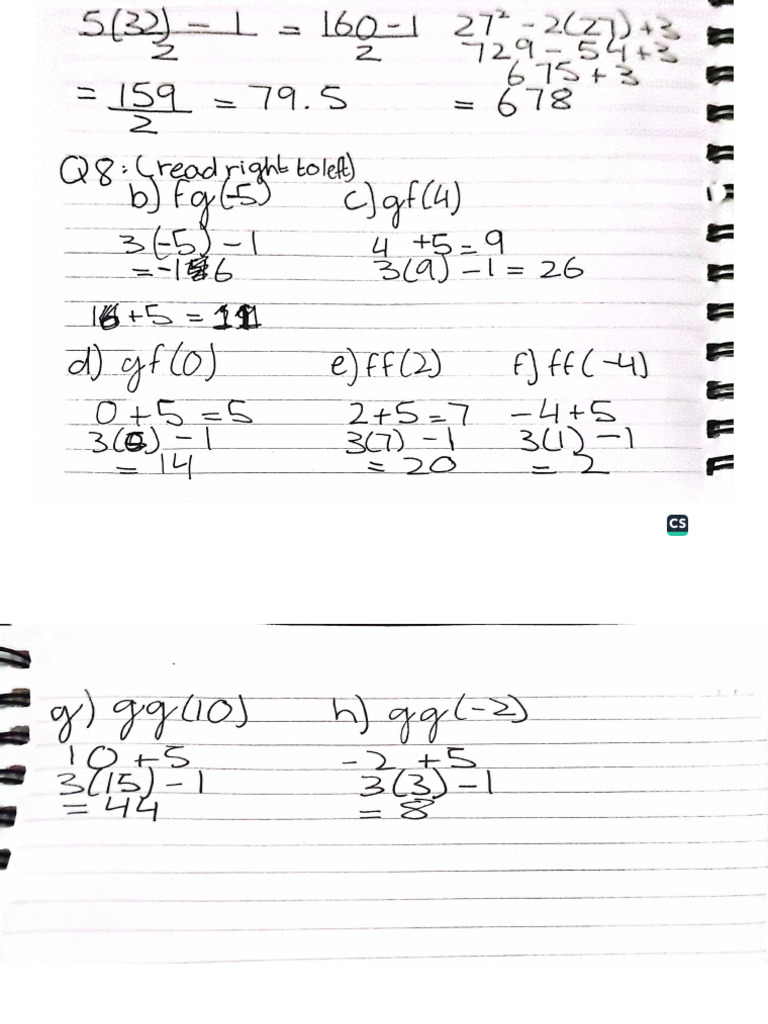 5(32) - 1 = 160 - 1
2 2
= 159 = 79.5
2
27² - 2(27) + 3
729 - 54 + 3
675 + 3
= 678
Q8: (read right to left)
b) fg(-5)
3(-5) - 1
= -16
16 + 5 = 11
c) gf(4)
4 + 5 = 9
3(9) - 1 = 26
d) gf(0)
0 + 5 = 5
3(5) - 1
= 14
e) ff(2)
2 + 5 = 7
3(7) - 1
= 20
f) ff(-4)
-4 + 5
3(1) - 1
= 2
CS
g) gg(10)
10 + 5
3(15) - 1
= 44
h) gg(-2)
-2 + 5
3(3) - 1
= 8